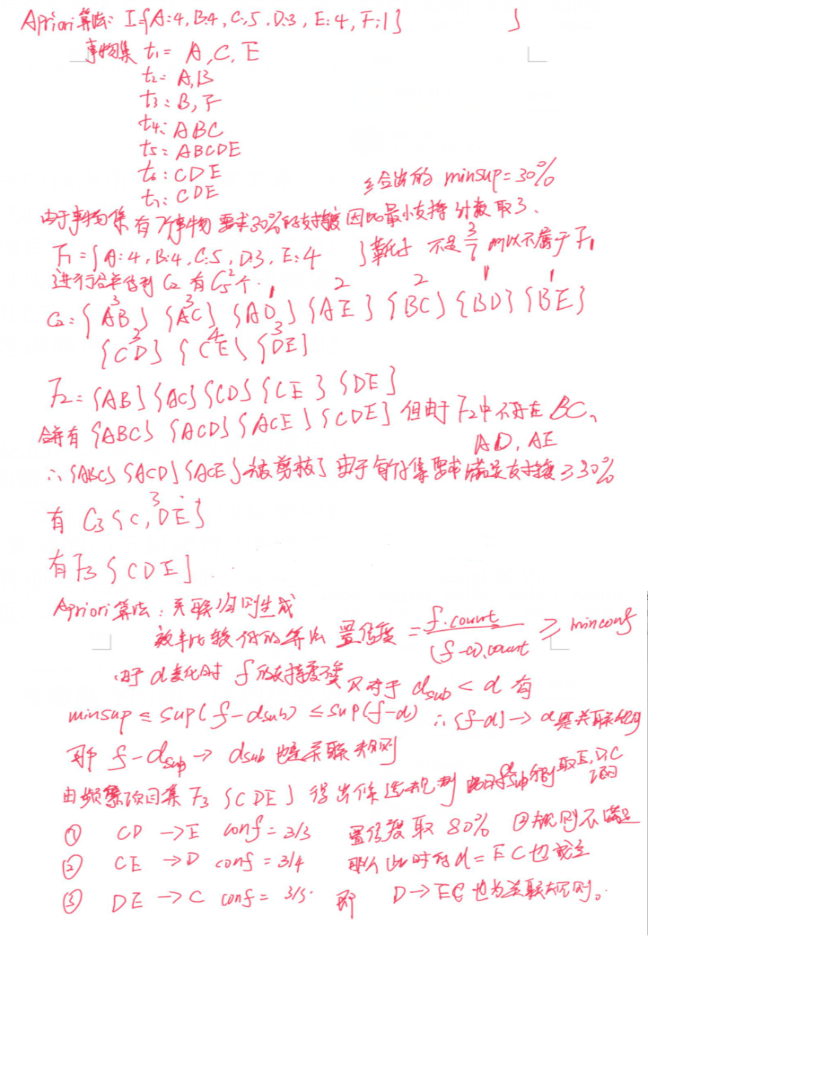 Apriori算法: I={A:4, B:4, C:5, D:3, E:4, F:1} }
事物集 t1 = A, C, E
t2: A, B
t3: B, F
t4: ABC
t5: ABCDE
t6: CDE
t7: CDE
给出的 minsup=30%
由于事物集有7个事物 要求30%的支持度 因此最小支持计数取3、
F1={A:4, B:4, C:5, D:3, E:4 } 不足 3/7 所以不属于F1
进行合并得到C2 有C5²个.
3 3 1 2 2 1 1
C2: {AB} {AC} {AD} {AE} {BC} {BD} {BE}
3 4 3
{CD} {CE} {DE}
F2={AB} {AC} {CD} {CE} {DE}
合并有 {ABC} {ACD} {ACE} {CDE} 但由于F2中不存在BC、
AD、AE
∴{ABC} {ACD} {ACE} 被剪枝了 由于每个子集要求满足支持度≥30%
3
有 C3 {C, DE}
有F3 {CDE}
Apriori算法: 关联规则生成
效率比较低的算法 置信度 = f.count / (f-α).count ≥ minconf
由于α变化时 f的支持度不变 又对于 αsub < α 有
minsup ≤ sup(f-αsub) ≤ sup(f-α) ∴ (f-α) → α 是关联规则
那么 f-αsub → αsub 也是关联规则
由频繁项目集 F3 {CDE} 得出候选规则 此时α分别取E,D,C
① CD → E conf = 3/3 置信度取 80% ②规则不满足
② CE → D conf = 3/4 那么此时有α=EC也成立
③ DE → C conf = 3/3 即 D→EC也为关联规则。